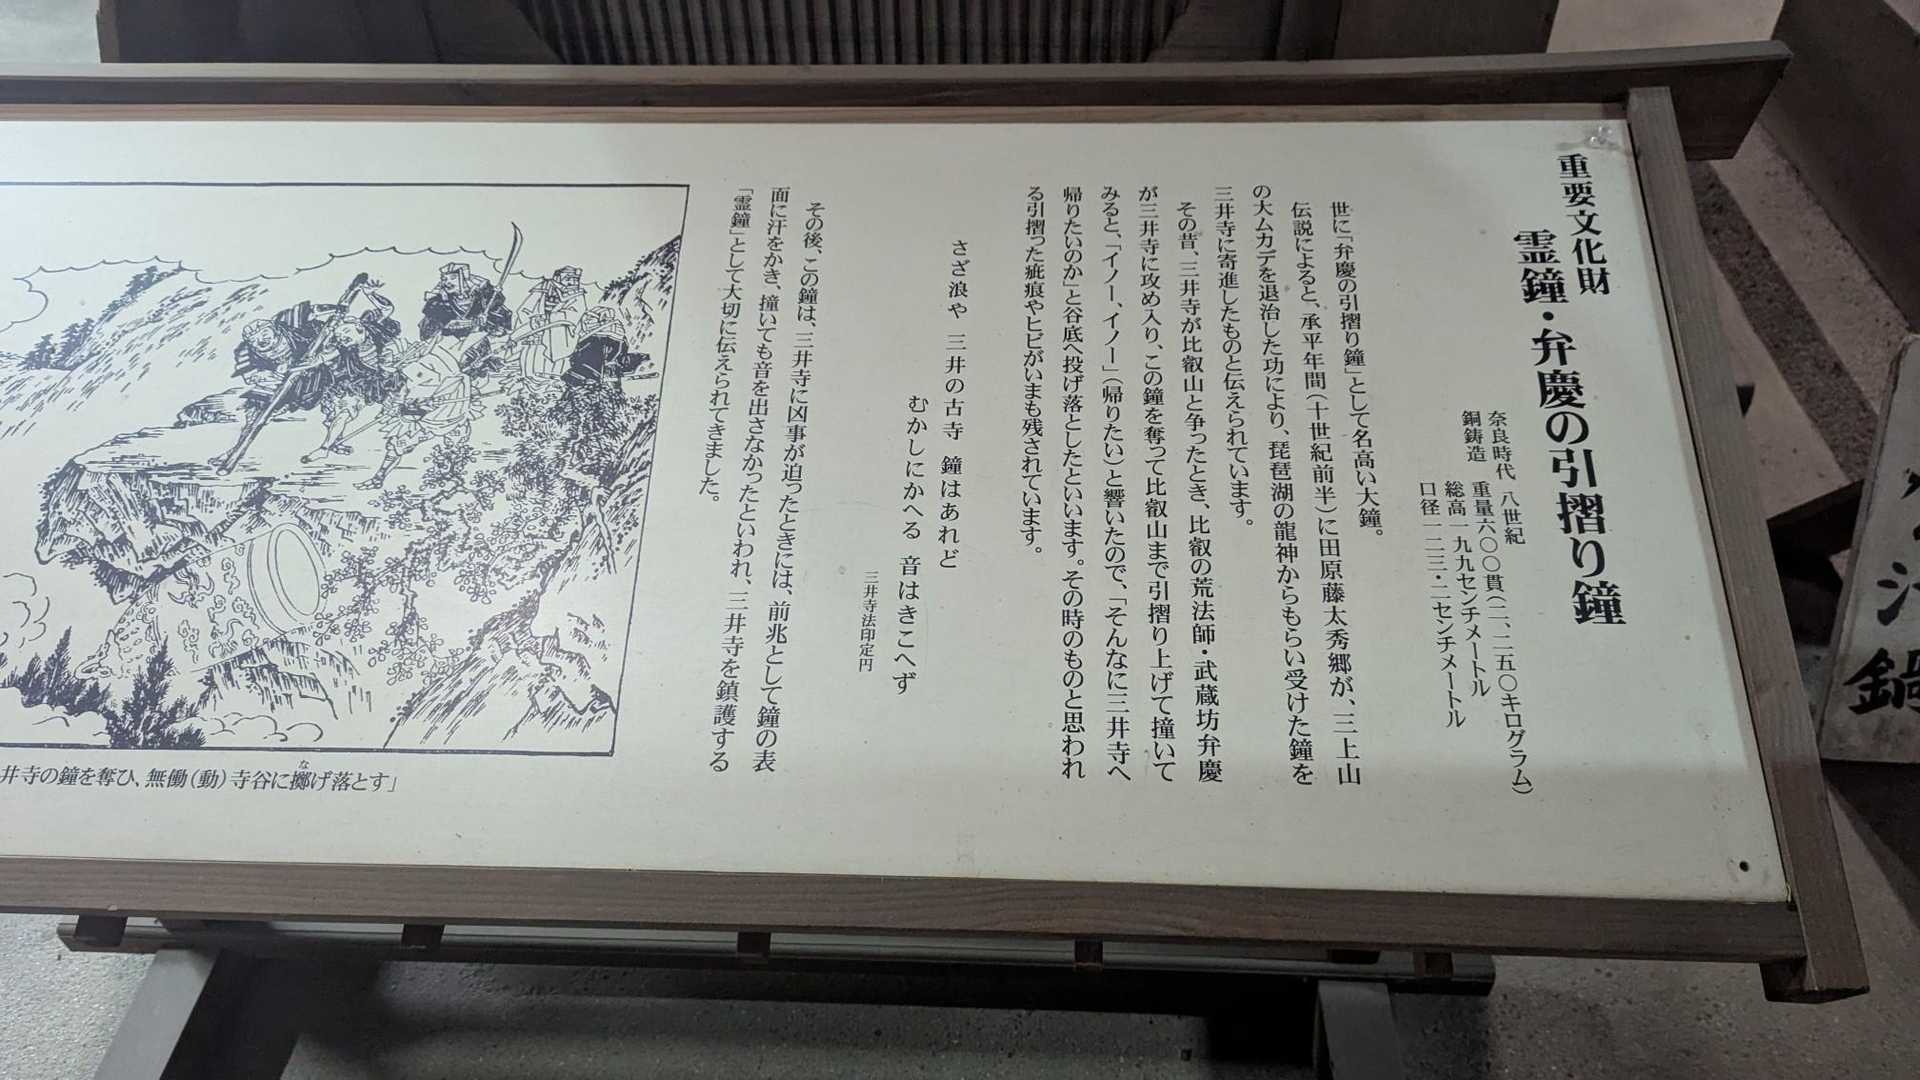 重要文化財
霊鐘・弁慶の引摺り鐘
奈良時代 八世紀
銅鋳造 重量六〇〇貫(二、二五〇キログラム)
総高一九九センチメートル
口径一二三・二センチメートル
世に「弁慶の引摺り鐘」として名高い大鐘。
伝説によると、承平年間(十世紀前半)に田原藤太秀郷が、三上山
の大ムカデを退治した功により、琵琶湖の龍神からもらい受けた鐘を
三井寺に寄進したものと伝えられています。
その昔、三井寺が比叡山と争ったとき、比叡の荒法師・武蔵坊弁慶
が三井寺に攻め入り、この鐘を奪って比叡山まで引摺り上げて撞いて
みると、「イノー、イノー」(帰りたい)と響いたので、「そんなに三井寺へ
帰りたいのか」と谷底へ投げ落としたといいます。その時のものと思われ
る引摺った疵痕やヒビがいまも残されています。
さざ浪や 三井の古寺 鐘はあれど
むかしにかへる 音はきこへず
三井寺法印定円
その後、この鐘は、三井寺に凶事が迫ったときには、前兆として鐘の表
面に汗をかき、撞いても音を出さなかったといわれ、三井寺を鎮護する
「霊鐘」として大切に伝えられてきました。
井寺の鐘を奪ひ、無働(動)寺谷に擲げ落とす」
な
鍋